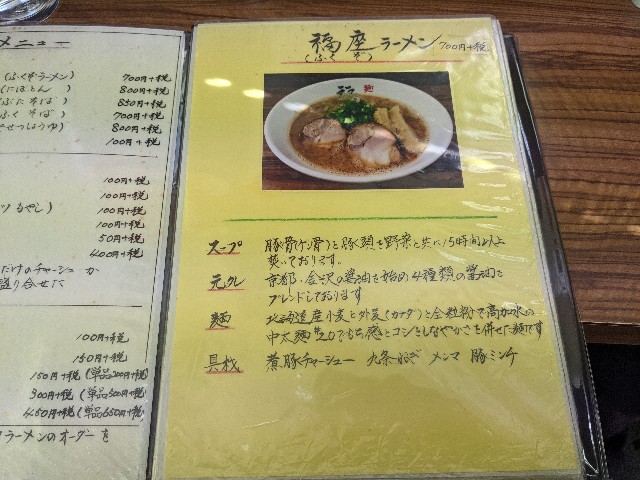 メニュー
(ふくぞラーメン) 700円+税
(にほとん ) 800円+税
(ぶたそば) 850円+税
ふくそば) 700円+税
させつしょうゆ) 800円+税
100円+税
100円+税
100円+税
ツ もやし) 100円+税
100円+税
50円+税
400円+税
だけのチャーシュー か
盛り合せに
100円+税
150円+税
150円+税 (単品200円+税)
300円+税 (単品500円+税)
450円+税 (単品650円+税)
ラーメンのオーダーを
福座ラーメン 700円+税
(ふくぞ)
スープ 豚骨(ゲン骨)と豚頭を野菜と共に15時間以上
焚いております。
元ダレ 京都・金沢の醤油を始め4種類の醤油を
ブレンドしております
麺 北海道産小麦と外麦(カナダ)と全粒粉で高加水の
中太麺 もち感とコシとしなやかさを併せた麺です
具材 煮豚チャーシュー 九条ねぎ メンマ 豚ミンチ